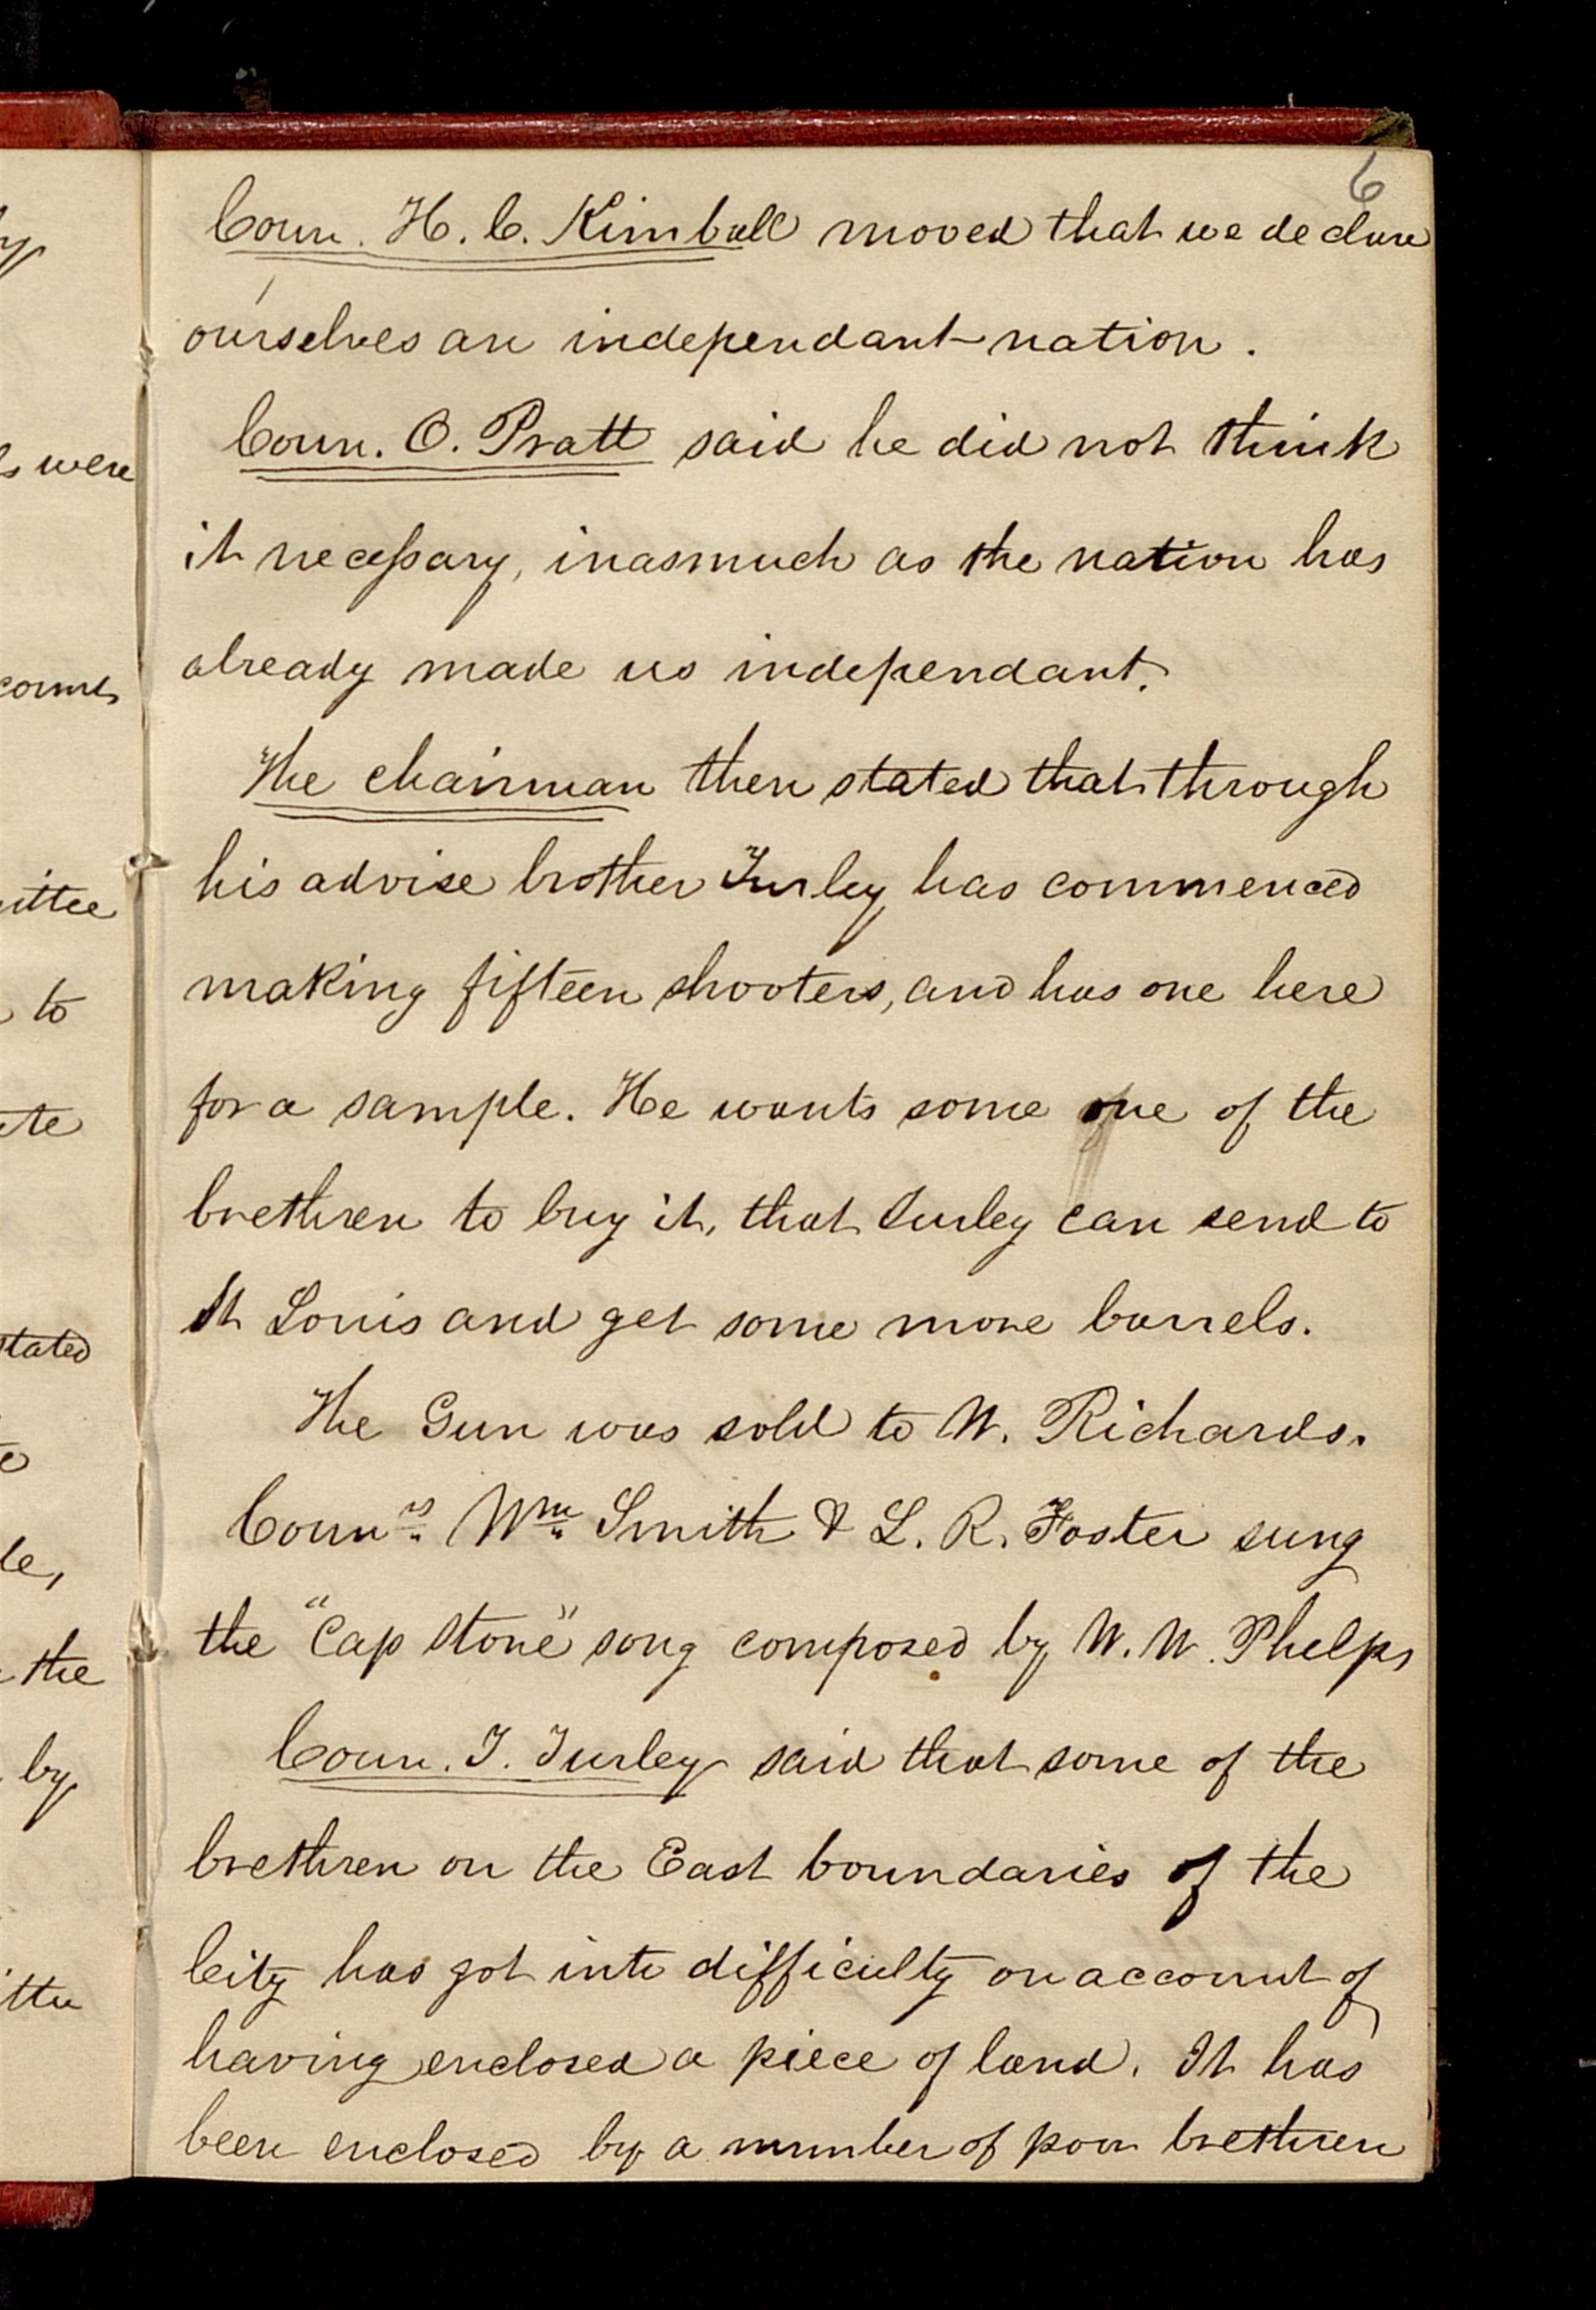 6
Coun. H. C. Kimball moved that we declare
ourselves an independant nation.
Coun. O. Pratt said he did not think
it necessary, inasmuch as the nation has
already made us independant.
The chairman then stated that through
his advise brother Turley has commenced
making fifteen shooters, and has one here
for a sample. He wants some one of the
brethren to buy it, that Turley can send to
St Louis and get some more barrels.
The Gun was sold to W. Richards.
Counrs. Wm. Smith & L. R. Foster sung
the "Cap stone" song composed by W. W. Phelps
Coun. T. Turley said that some of the
brethren on the East boundaries of the
City has got into difficulty on account of
having enclosed a piece of land. It has
been enclosed by a number of poor brethren
s were
ittee
to
stated
le,
the
by